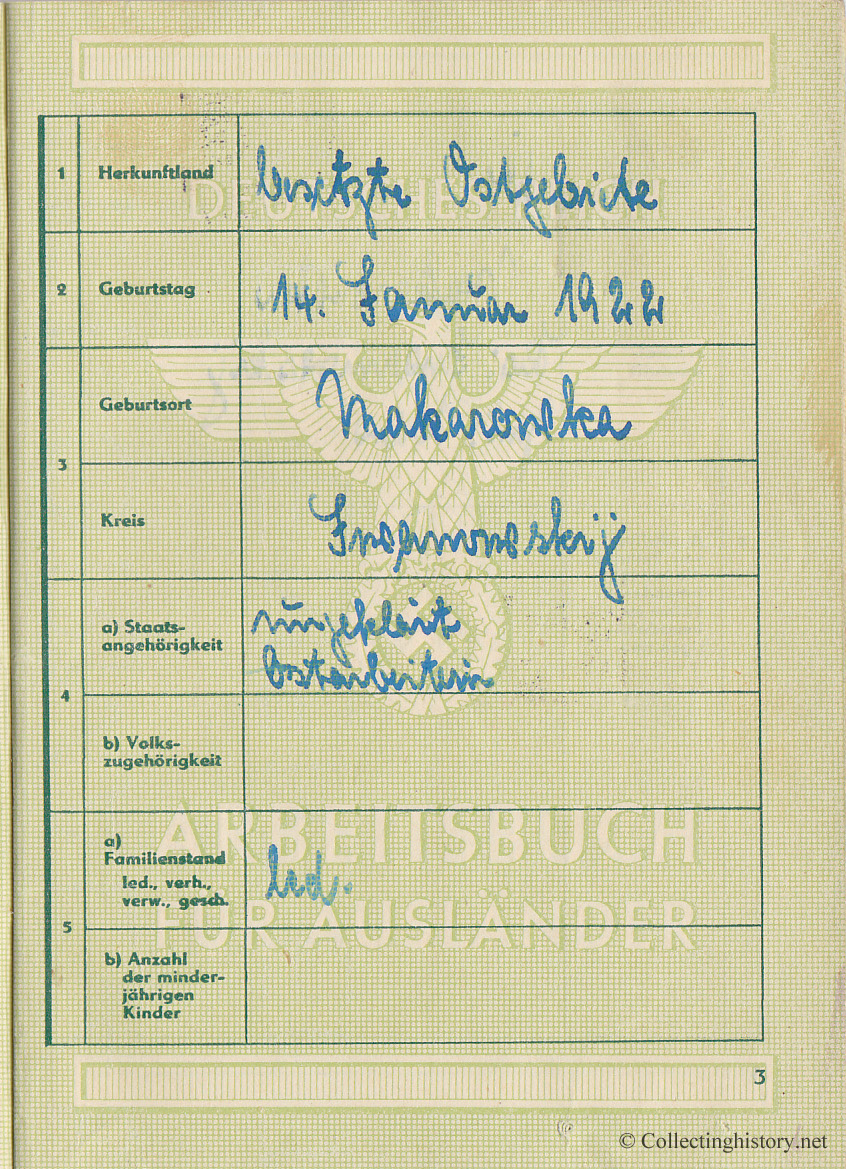 DEUTSCHES REICH
1 Herkunftland besetzte Ostgebiete
2 Geburtstag 14. Januar 1922
3 Geburtsort Makarowka
Kreis
4 a) Staats-
angehörigkeit ungeklärt
Ostarbeiterin
b) Volks-
zugehörigkeit
ARBEITSBUCH
FÜR AUSLÄNDER
5 a)
Familienstand
led., verh.,
verw., gesch. led.
b) Anzahl
der minder-
jährigen
Kinder
3
© Collectinghistory.net